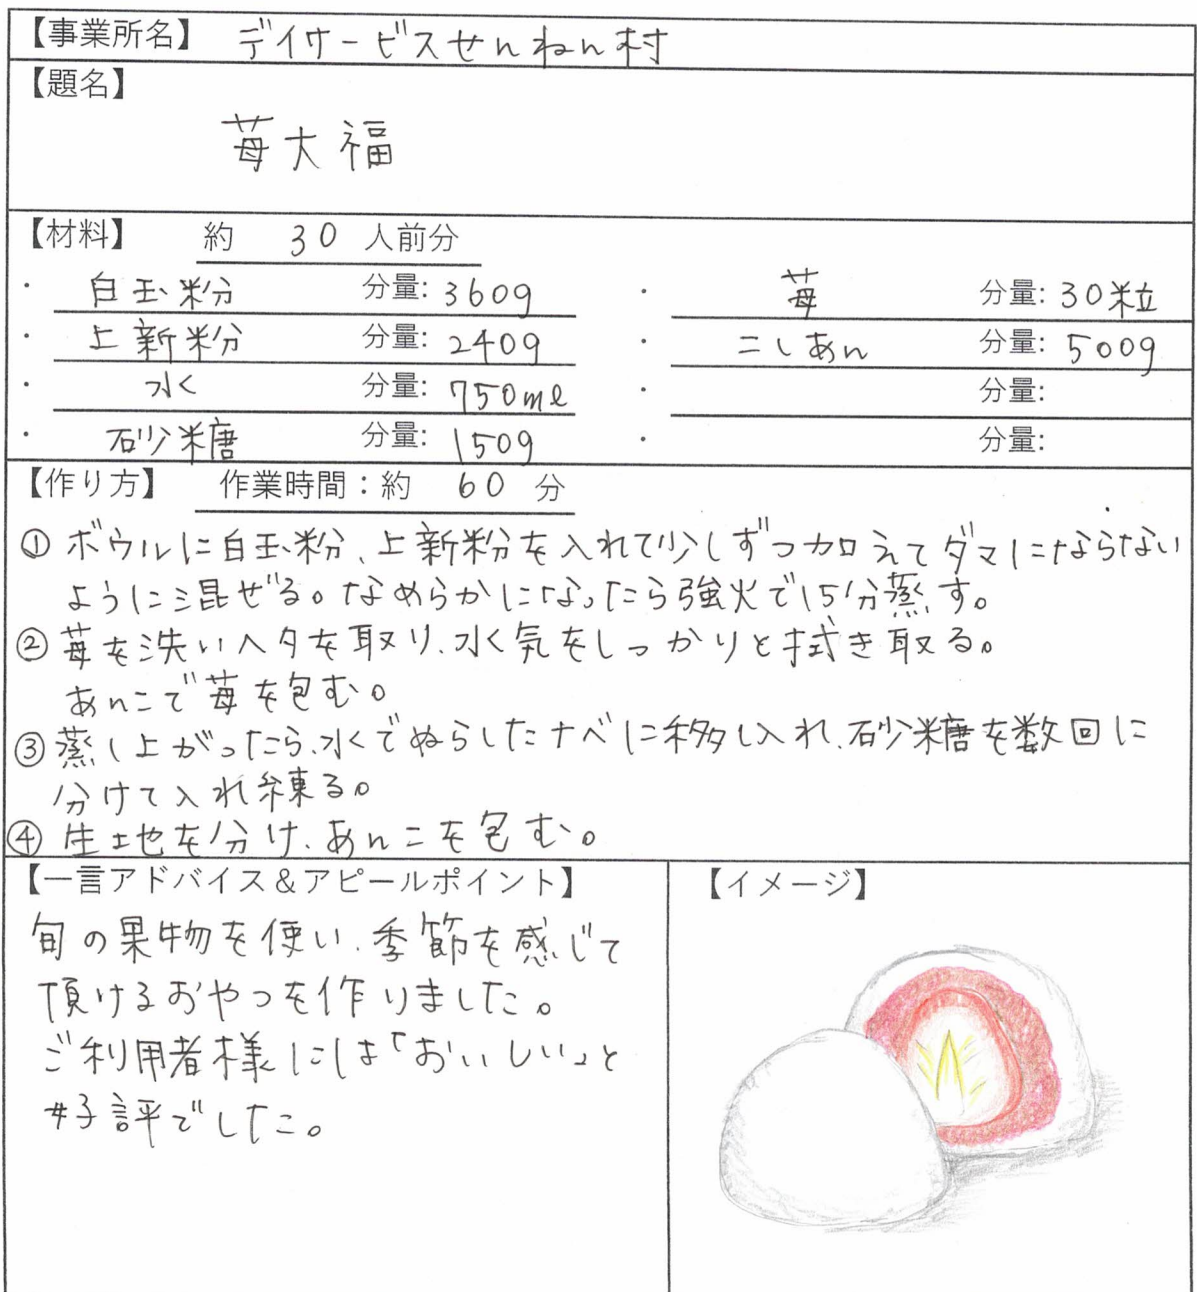 【事業所名】 デイサービスせんねん村
【題名】
苺大福
【材料】 約 30 人前分
・ 白玉粉 分量: 360g ・ 苺 分量: 30粒
・ 上新粉 分量: 240g ・ こしあん 分量: 500g
・ 水 分量: 750ml ・ 分量:
・ 砂糖 分量: 150g ・ 分量:
【作り方】 作業時間：約 60 分
① ボウルに白玉粉、上新粉を入れて少しずつ加えてダマにならない
ように混ぜる。なめらかになったら強火で15分蒸す。
② 苺を洗いヘタを取り、水気をしっかりと拭き取る。
あんこで苺を包む。
③ 蒸し上がったら、水でぬらしたナベに移し入れ、砂糖を数回に
分けて入れ練る。
④ 生地を分け、あんこを包む。
【一言アドバイス＆アピールポイント】
旬の果物を使い、季節を感じて
頂けるおやつを作りました。
ご利用者様には「おいしい」と
好評でした。
【イメージ】